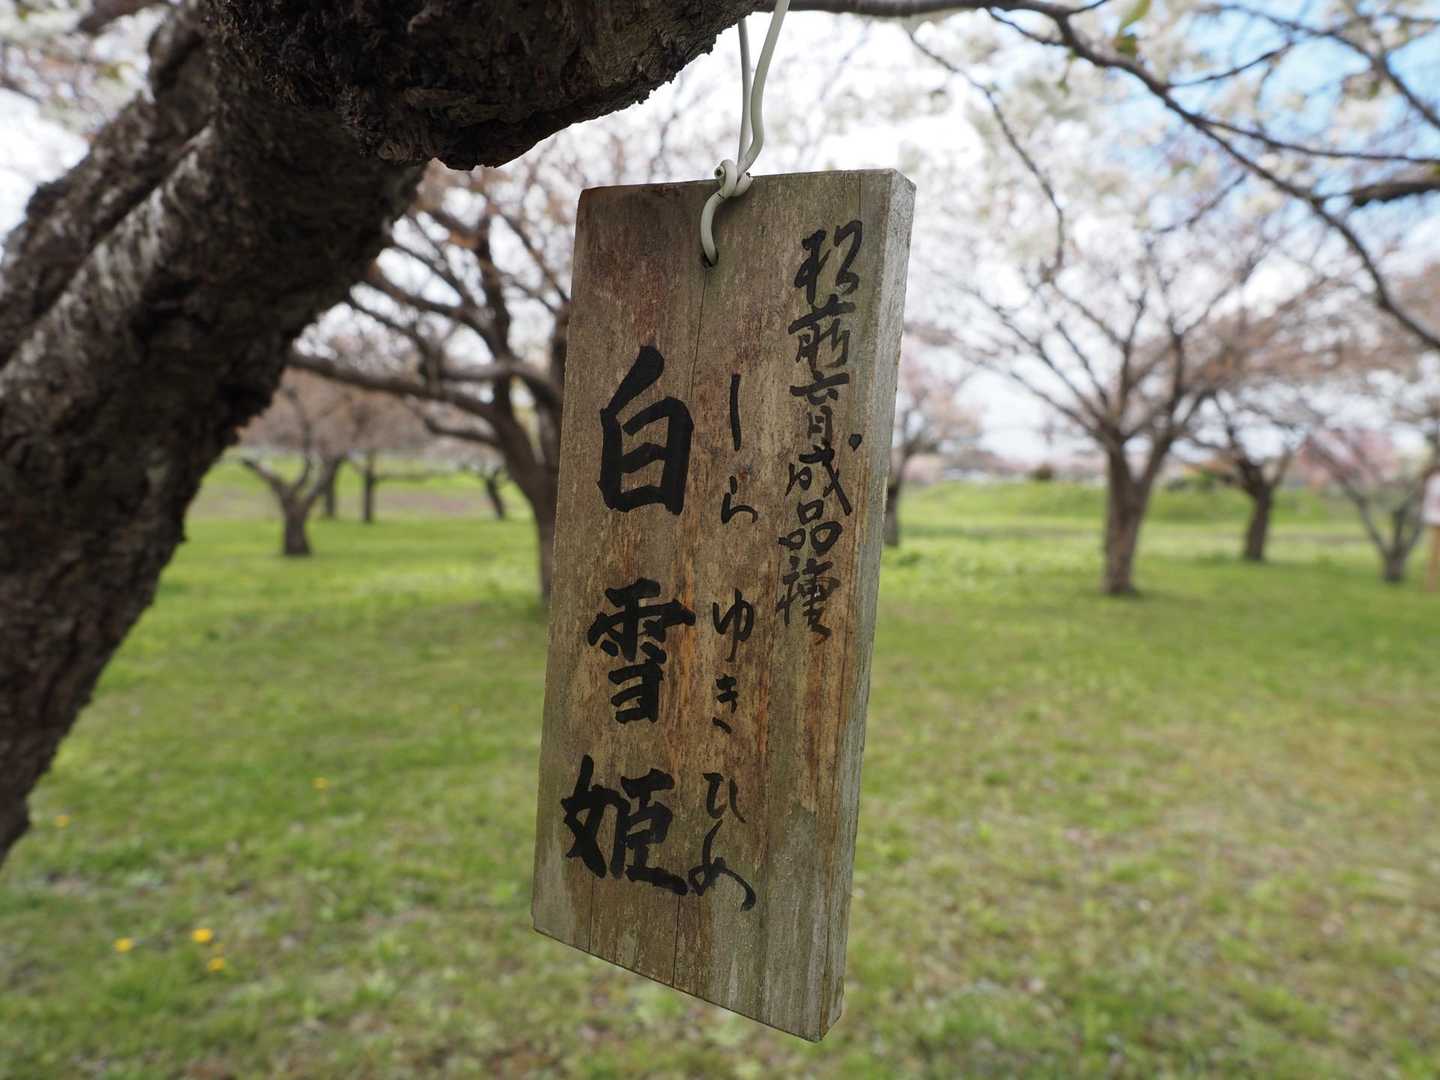 松前育成品種
しらゆきひめ
白雪姫